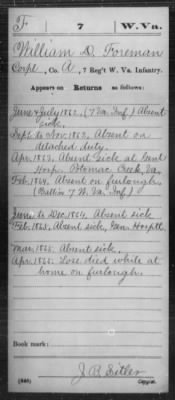 F. 7 W. Va.
William D. Foreman
Corpl., Co. A, 7 Reg't W. Va. Infantry.
Appears on
Returns as follows:
June & July 1862, (7 Va. Inf.) Absent
sick.
Sept. to Nov. 1862, Absent on
detached duty.
Apr. 1863, Absent sick at Genl
Hosp. Potomac Creek, Va.
Feb. 1864, Absent on furlough.
(Battn 7 W. Va. Inf.)
June to Dec. 1864, Absent sick
Feb. 1865, Absent sick, Gen. Hospl.
Mar. 1865, Absent sick.
Apr. 1865, Loss died while at
home on furlough.
Book mark:
J. R. Sitler
Copyist.